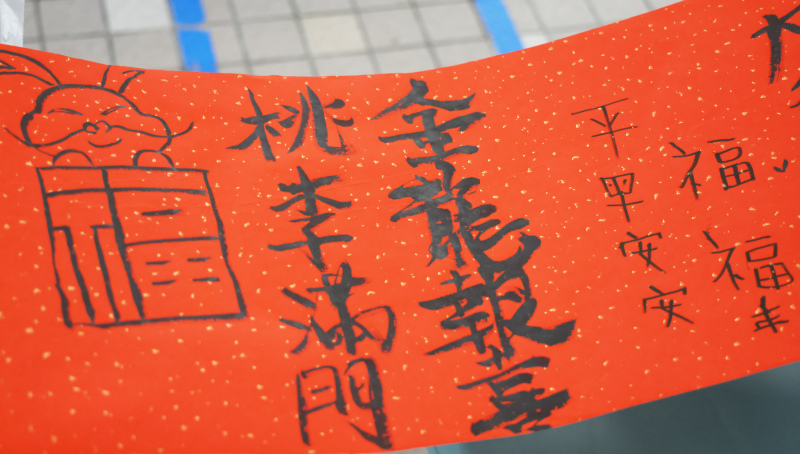 福福
平安安
金龍報喜
桃李滿門
福